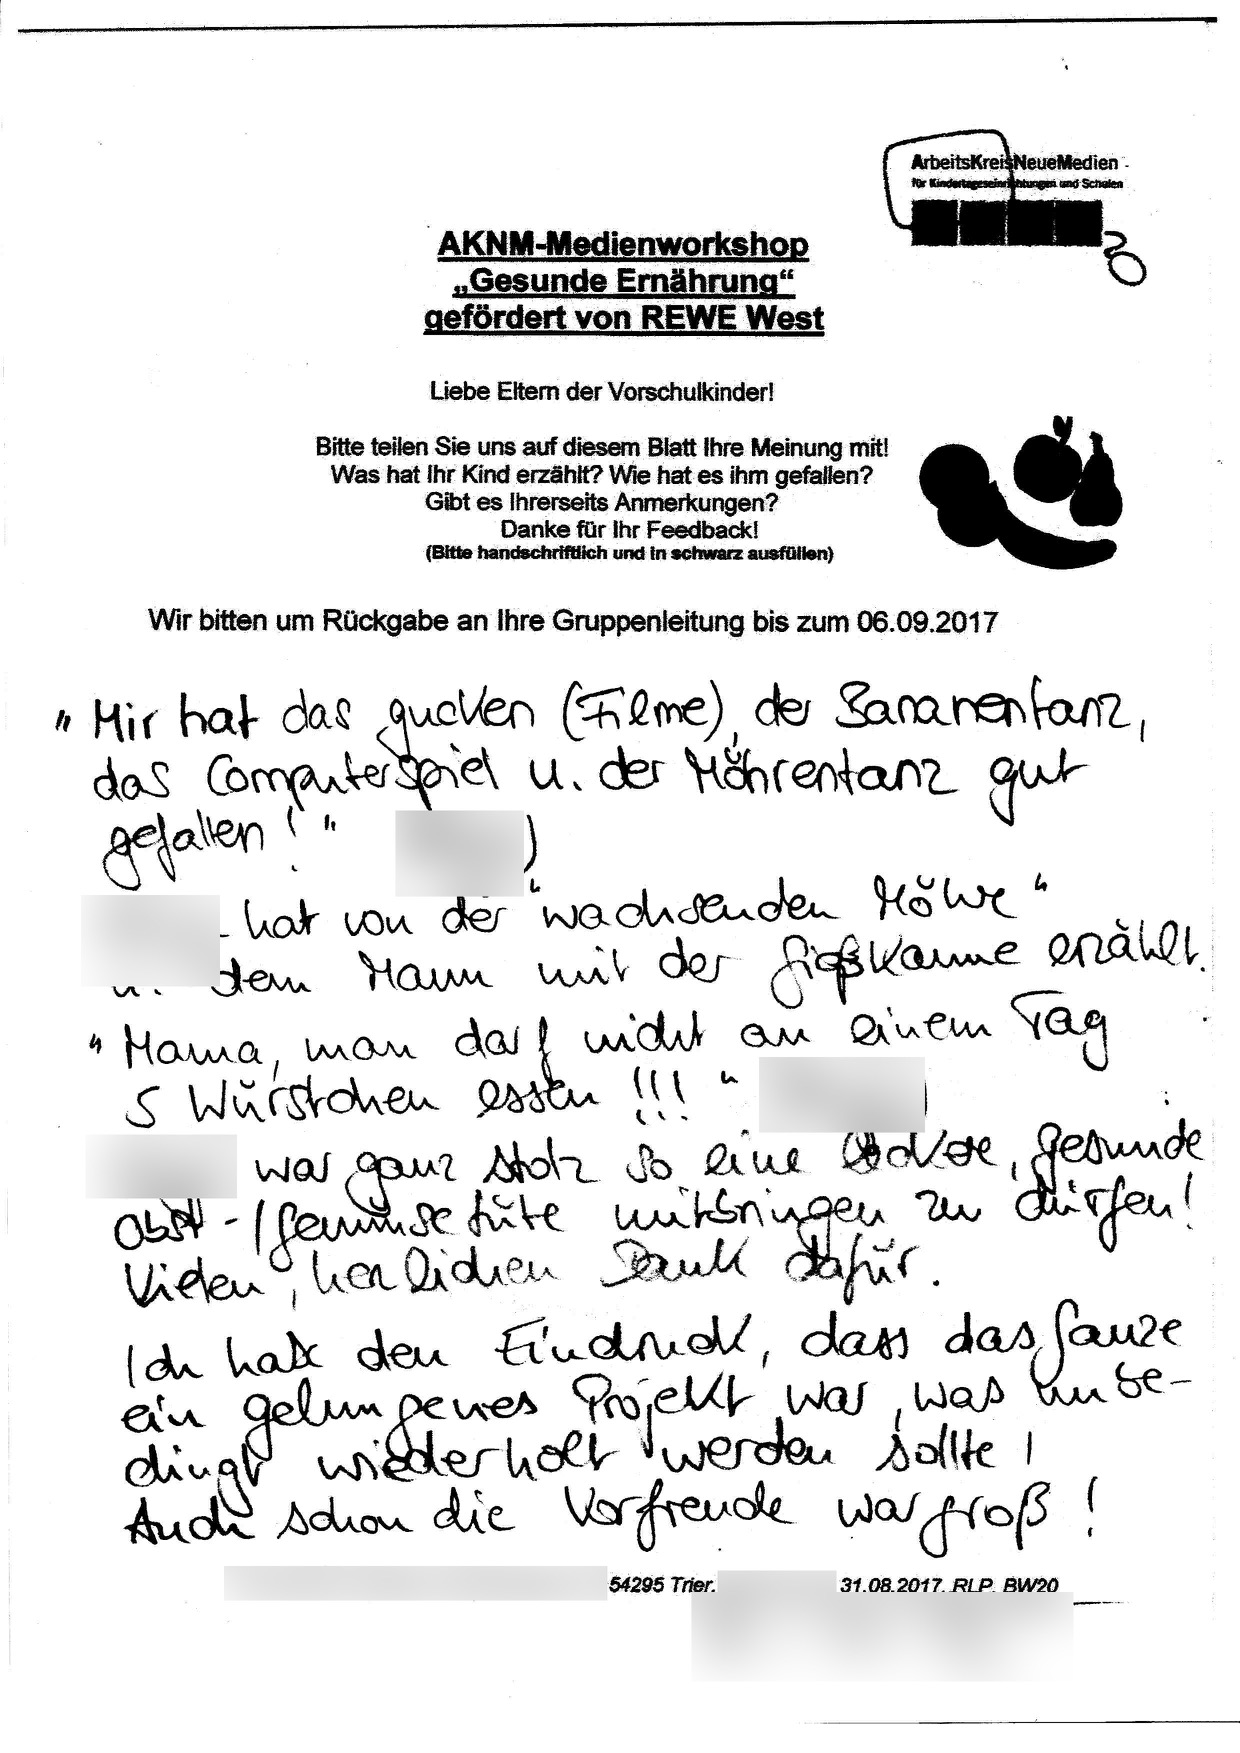 ArbeitsKreisNeueMedien
für Kindertageseinrichtungen und Schulen
AKNM-Medienworkshop
„Gesunde Ernährung“
gefördert von REWE West
Liebe Eltern der Vorschulkinder!
Bitte teilen Sie uns auf diesem Blatt Ihre Meinung mit!
Was hat Ihr Kind erzählt? Wie hat es ihm gefallen?
Gibt es Ihrerseits Anmerkungen?
Danke für Ihr Feedback!
(Bitte handschriftlich und in schwarz ausfüllen)
Wir bitten um Rückgabe an Ihre Gruppenleitung bis zum 06.09.2017
"Mir hat das gucken (Filme), der Bananentanz,
das Computerspiel u. der Möhrentanz gut
gefallen!" )
hat von der "wachsenden Möhre"
u. dem Mann mit der Gießkanne erzählt.
"Mama, man darf nicht an einem Tag
5 Würstchen essen !!!"
war ganz stolz so eine leckere, gesunde
Obst-/Gemüsetüte mitbringen zu dürfen!
Vielen, herzlichen Dank dafür.
Ich habe den Eindruck, dass das Ganze
ein gelungenes Projekt war, was unbe-
dingt wiederholt werden sollte!
Auch schon die Vorfreude war groß!
54295 Trier. 31.08.2017. RLP. BW20